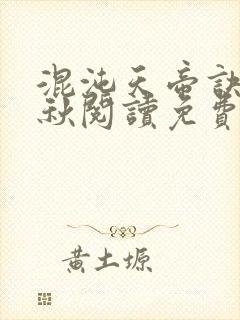 混沌天帝訣
秋閱讀免費
黃土塬